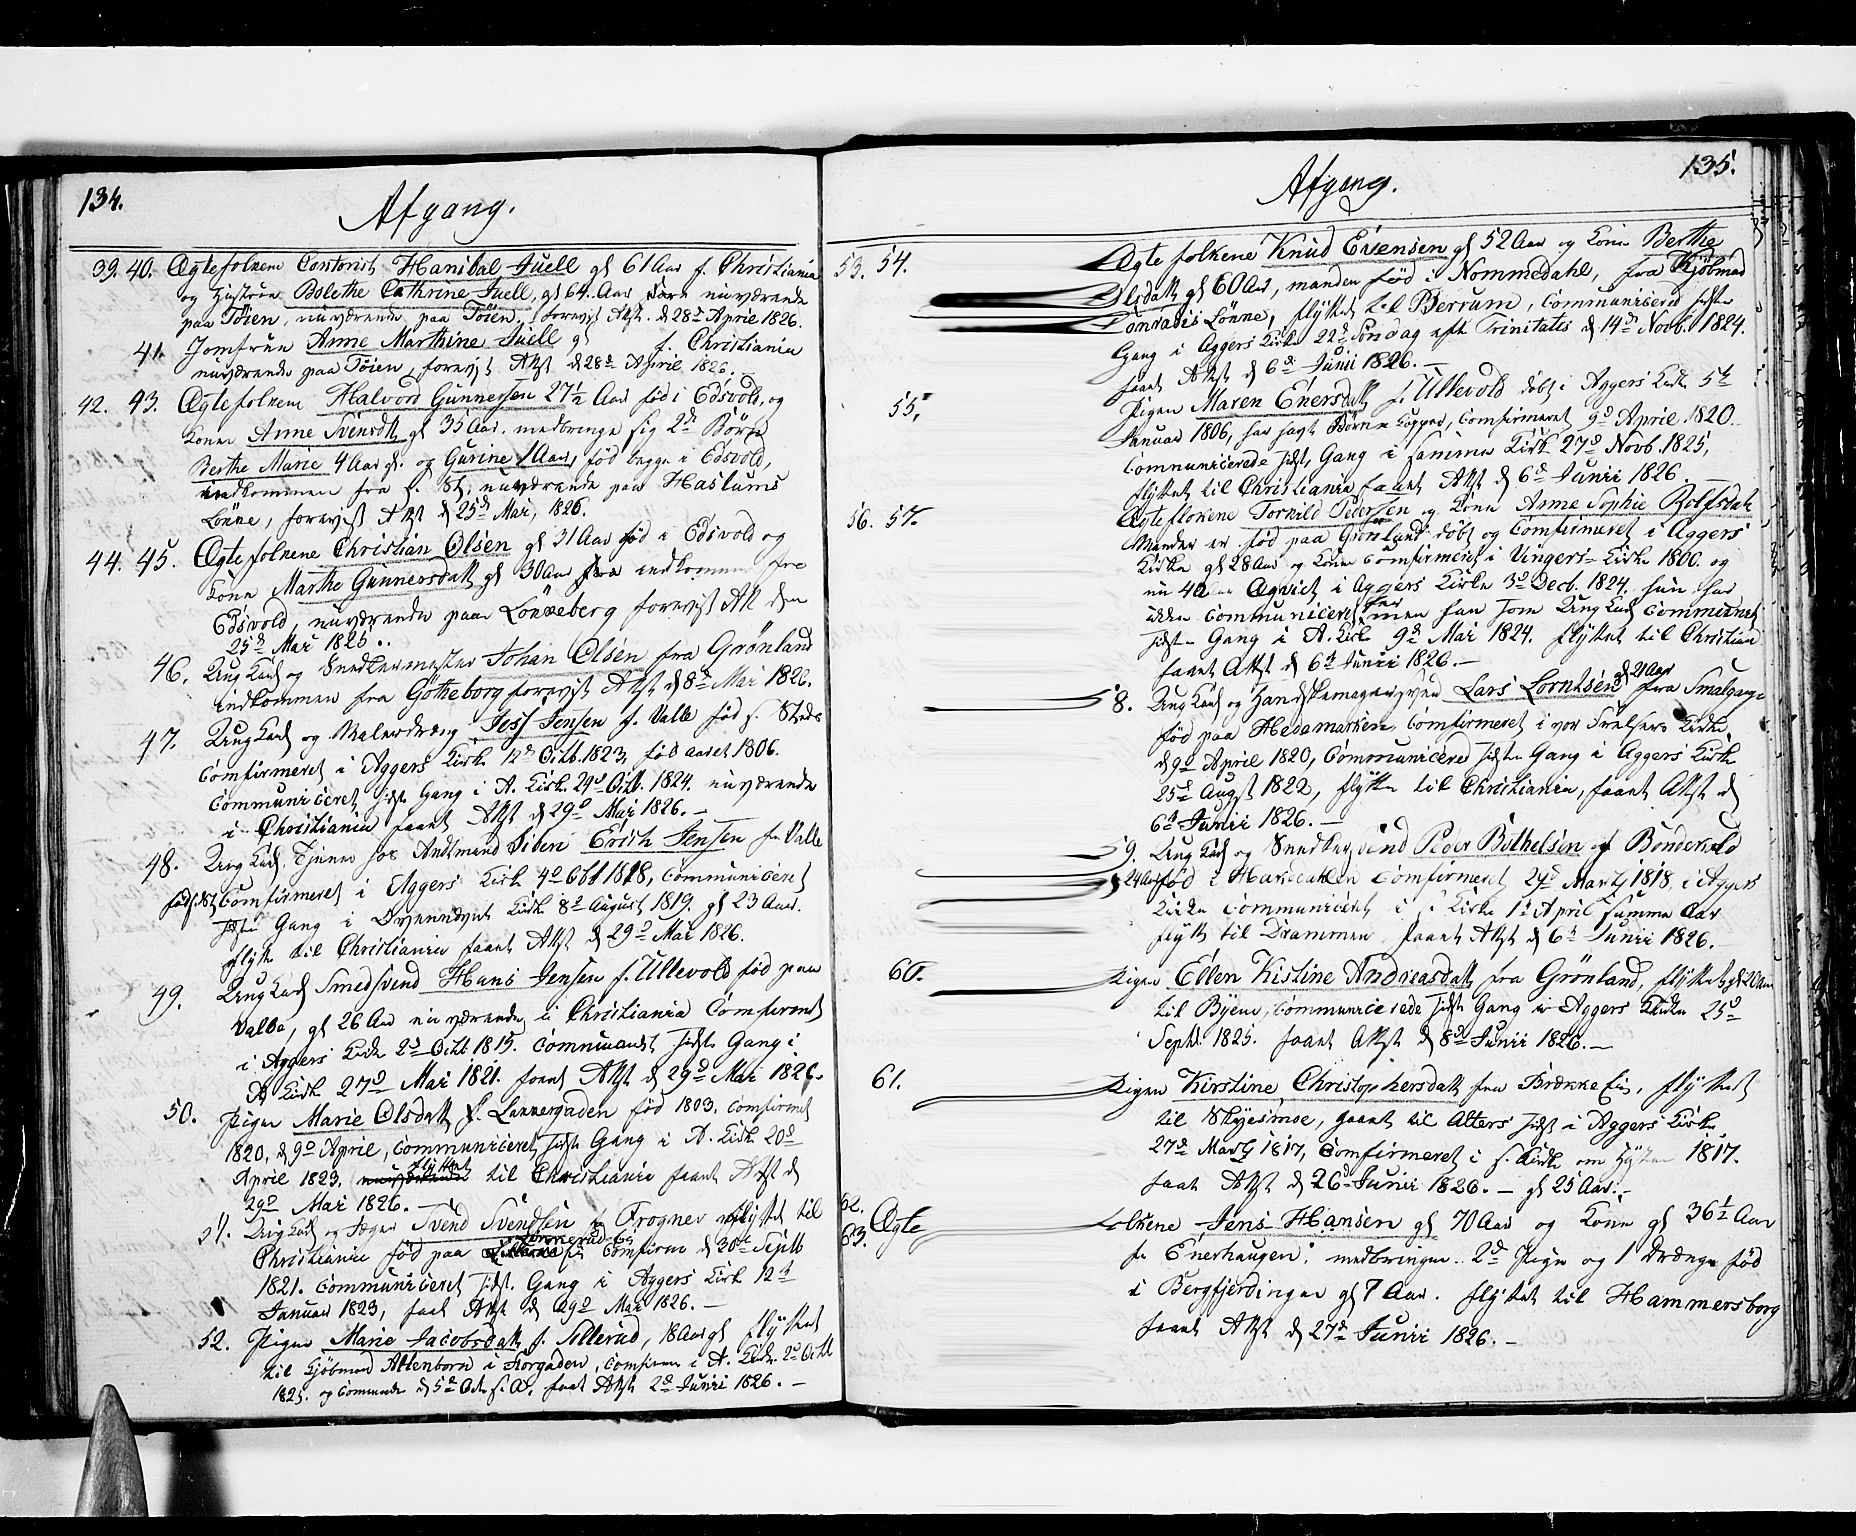 134.
Afgang.
39. 40. Ægtefolkene Contorist Hanibal Juell gl 61 Aar f. Christiania
og Hustrue Bolethe Cathrine Juell, gl 64 Aar nuværende
paa Töien, nuværende paa Töien, forevist Attst. d 28d Aprie 1826.
41. Jomfrue Anne Marthine Juell gl f. Christiania
nuværende paa Töien, forevist Attst d 28d April 1826.
42. 43. Ægtefolkene Halvord Gunnersen 27½ Aar föd i Edsvold, og
Konen Anne Svensdtt gl 35 Aar. medbringe sig 2de Börn
Berthe Marie 4 Aar gl. og Gurine 1 Aar, föd begge i Edsvold,
indkommen fra s. St, nuværende paa Haslums
Lönne, forevist Attst d 25d Mai, 1826.
44. 45. Ægtefolkene Christian Olsen gl 31 Aar föd i Edsvold og
Kone Marthe Gunnersdatt gl 30 Aar indkommen fra
Edsvold, nuværende paa Lönneberg forevist Att den
25d Mai 1825.
46. Ung Karl og Snedkermester Johan Olsen fra Grönland
indkommen fra Götheborg forevist Attst d 8d Mai 1826.
47. Ung Karl og Malerdreng Jess Jensen f. Valle föd s. Steds
Comfirmeret i Aggers Kirke 12d Octb. 1823, föd aaret 1806.
Communiceret sidste Gang i A. Kirke 24d Octb. 1824. nuværende
i Christiania faaet Attst d 29d Mai 1826. —
48. Ung Karl, Tjener hos Amtmand Sibern Erich Jensen fra Valle
föd s. St, Comfirmeret i Aggers Kirk 4d Obt 1818, Communiceret
sidste Gang i Kirke 8d August 1819. gl 23 Aar.
flytt til Christiania faaet Attst d 29d Mai 1826.
49. Ung Karl Smedsvend Hans Jensen f. Ullevold föd paa
Valle, gl 26 Aar nuværende i Christiania Comfiremt
i Aggers Kirke 2d Octb 1815. Communicert sidste Gang i
A Kirke 27d Mai 1821. faaet Attst d 29d Mai 1826.
50. Pigen Marie Olsdatt f. Lakkegaden föd 1803. Comfirmet
1820, d 9d April, Communiceret sidste Gang i A. Kirk 20d
April 1823. nuværende flyttet til Christiania faaet Attst d
29d Mai 1826. —
51. Ung Karl og Svend Svendsen f Frogner flyttet til
Christiania föd paa Comfirm d 30t Septb
1821. Communiceret sidst. Gang i Aggers Kirk 12t
Januar 1823, faaet Attst d 29d Mai 1826. —
52. Pigen Marie Jacobsdatt f. Sillerud, 18 Aar gl flyttet
til Kjöbmand Altenborn i Storgaden, Comfirm i A. Kirke 2d Octb
1825. og Commune d 5d s. A. faaet Attst 2d Junii 1826. —
135.
Afgang.
53. 54. Ægtefolkene Knud Evensen gl 52 Aar og Kone Berthe
Olsdatt gl 60 Aar, manden föd i Nommedahl, fra Kjöbmad
Conradis Lönne, flyttet til Berrum, Communicered sidste
Gang i Aggers Kirke 22d Söndag eft Trinitatis d 14d Novb. 1824.
faaet Attst d 6d Junii 1826. —
55. Pigen Maren Enersdatt f. Ullevold döbt i Aggers Kirk 5t
Januar 1806, har havt Börnekopper, Comfirmeret 9d April 1820.
Communicerede sidst, Gang i samme Kirk 27d Novb. 1825,
flyttet til Christiania faaet Attst d 6d Junii 1826. —
56. 57. Ægteflokene Torkild Pedersen og Kone Anne Sophie Rolfsdatt
Manden er föd paa Grönland döbt og Comfirmeret i Aggers
Kirke gl 28 Aar og Kone Comfirmeret i Vingers Kirke 1806. og
nu 40 Aar Egviet i Aggers Kirke 3d Decb. 1824. hun har
ikke Communiceret her, men han som Ung Karl Communiet
sidste Gang i A. Kirke 9d Mai 1824. flyttet til Christian
faaet Attst d 6d Junii 1826. —
58. Ung Karl og Handskemagersvend Lars Lorntsen gl 21 Aar fra Smalgang
föd paa Hedemarken, Comfirmeret i vor Frelsers Kirke
d 9d April 1820, Communicered sidste Gang i Aggers Kirke
25d Augst 1822, flytte til Christiania, faaet Attst d
6d Junii 1826. —
59. Ung Karl og Snedkersvend Peder Bothelsen af Bondevold
gl 24 Aar föd i Comfirmeret 24d Marty 1818. i Aggers
Kirke Communiceret i s. Kirke 1d April samme Aar
flytt til Drammen faaet Attst d 6d Junii 1826. —
60. Pigen Ellen Kistine Andreasdatt fra Grönland, flyttet, gl 20 Aar
til Byen, Communicerede sidste Gang i Aggers Kirke 25d
Septb. 1825. faaet Attst d 8d Junii 1826. —
61. Pigen Kirstine Christophersdatt fra Brække Eie, flyttet
til Skyesmoe, gaaet til Alters sidst i Aggers Kirke
27d Marty 1817, Comfirmeret i s. Kirke om Hösten 1817.
faaet Attst d 26d Junii 1826. — gl 25 Aar. —
62. 63. Ægtefolkene Jens Hansen gl 70 Aar og Kone gl 36½ Aar
fra Enerhaugen, medbringer 2d Pige og 1 Dreng föd
i Bergfjerdingen gl 7 Aar. flyttet til Hammersborg
faaet Attst d 27d Junii 1826. —